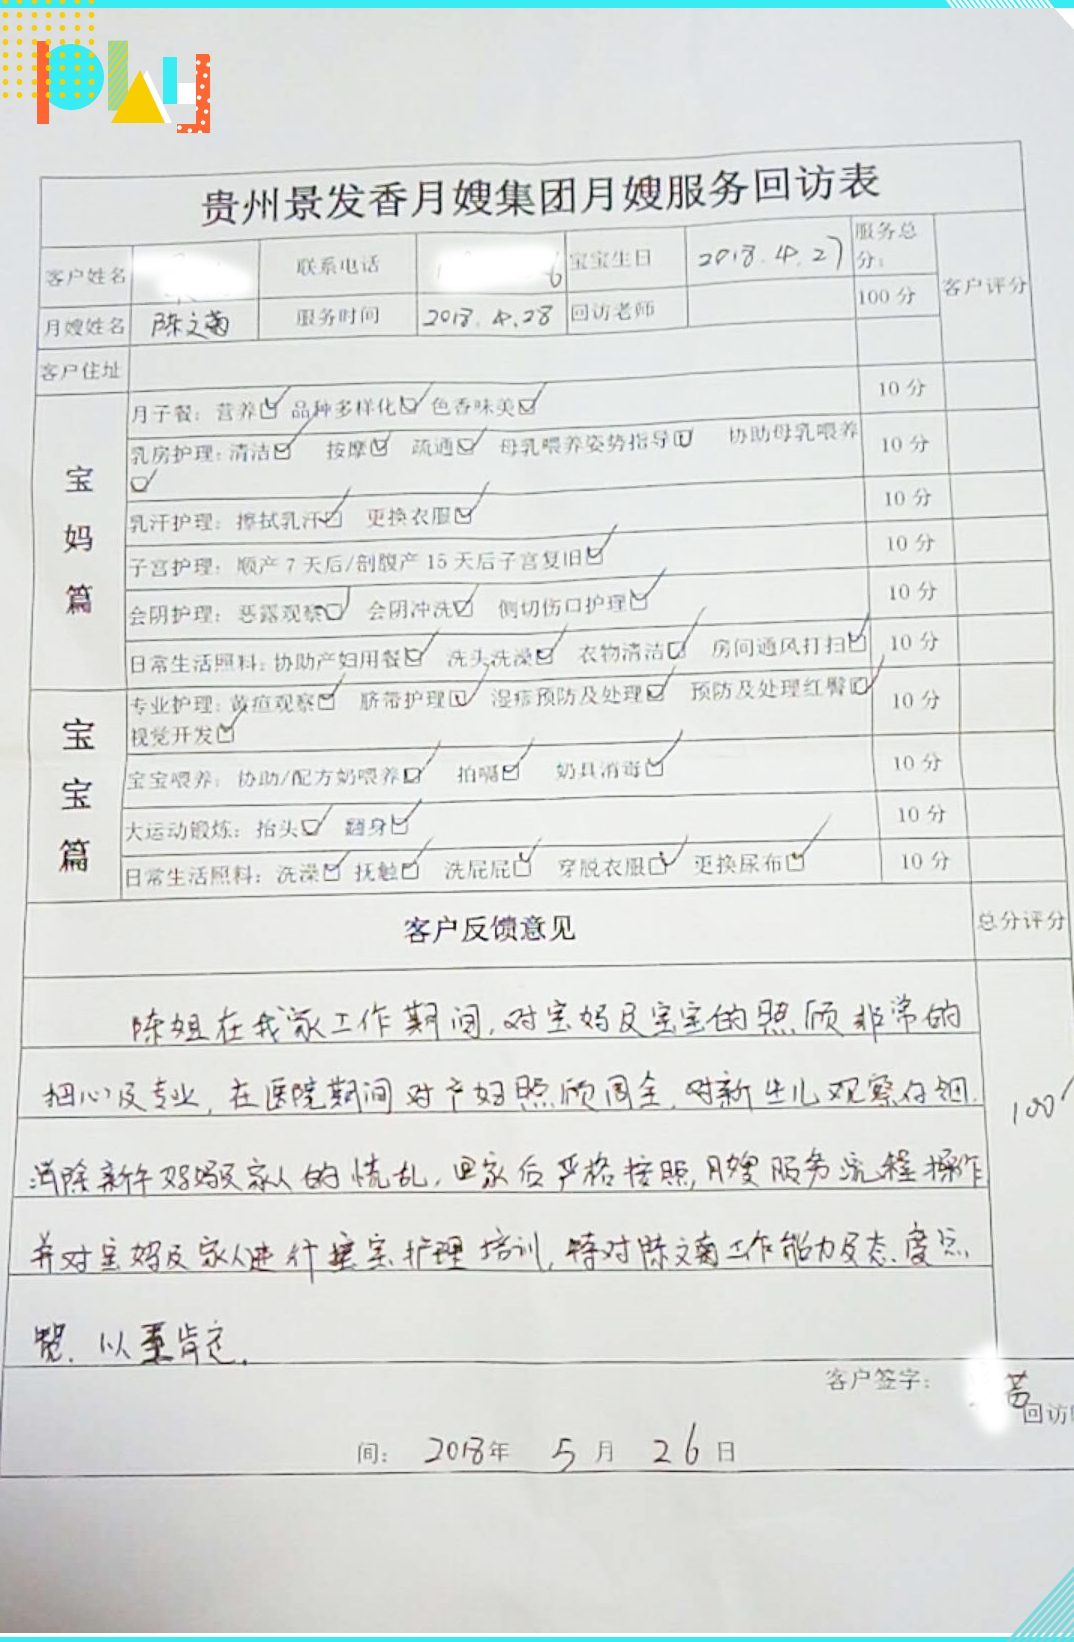 play
贵州景发香月嫂集团月嫂服务回访表
客户姓名 联系电话 6 宝宝生日 2018.4.27 服务总分： 客户评分
月嫂姓名 陈文菊 服务时间 2018.4.28 回访老师 100 分
客户住址
宝妈篇
月子餐：营养☑ 品种多样化☑ 色香味美☑ 10 分
乳房护理：清洁☑ 按摩☑ 疏通☑ 母乳喂养姿势指导☑ 协助母乳喂养 10 分
☑
乳汗护理：擦拭乳汗☑ 更换衣服☑ 10 分
子宫护理：顺产 7 天后/剖腹产 15 天后子宫复旧☑ 10 分
会阴护理：恶露观察☑ 会阴冲洗☑ 侧切伤口护理☑ 10 分
日常生活照料：协助产妇用餐☑ 洗头洗澡☑ 衣物清洁☑ 房间通风打扫☑ 10 分
宝宝篇
专业护理：黄疸观察☑ 脐带护理☑ 湿疹预防及处理☑ 预防及处理红臀☑ 10 分
视觉开发☑
宝宝喂养：协助/配方奶喂养☑ 拍嗝☑ 奶具消毒☑ 10 分
大运动锻炼：抬头☑ 翻身☑ 10 分
日常生活照料：洗澡☑ 抚触☑ 洗屁屁☑ 穿脱衣服☑ 更换尿布☑ 10 分
客户反馈意见 总分评分
陈姐在我家工作期间，对宝妈及宝宝的照顾非常的
细心及专业，在医院期间对产妇照顾周全，对新生儿观察仔细， 100
消除新手妈妈及家人的慌乱，回家后严格按照月嫂服务流程操作
并对宝妈及家人进行宝宝护理培训，特对陈文菊工作能力及态度
以肯定.
客户签字：
回访
间： 2018年 5 月 26 日